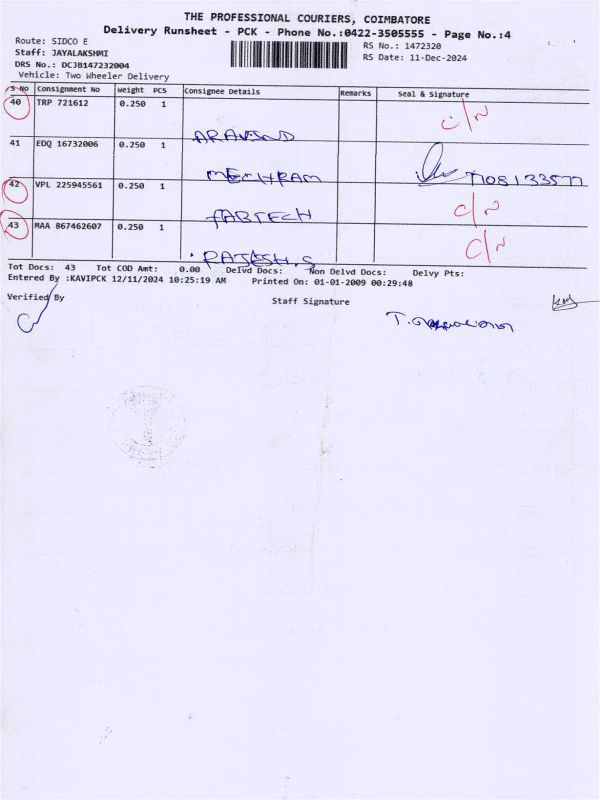 THE PROFESSIONAL COURIERS, COIMBATORE
Delivery Runsheet - PCK - Phone No.:0422-3505555 - Page No.:4
Route: SIDCO E
RS No.: 1472320
Staff: JAYALAKSHMI
RS Date: 11-Dec-2024
DRS No.: DCJB147232004
Vehicle: Two Wheeler Delivery
S No Consignment No Weight PCS Consignee Details Remarks Seal & Signature
40 TRP 721612 0.250 1 C/N
ARAVIND
41 EDQ 16732006 0.250 1
42 VPL 225945561 0.250 1 C/N
FABTECH
43 MAA 867462607 0.250 1 C/N
RAJESH.S
Tot Docs: 43 Tot COD Amt: 0.00 Delvd Docs: Non Delvd Docs: Delvy Pts:
Entered By :KAVIPCK 12/11/2024 10:25:19 AM Printed On: 01-01-2009 00:29:48
Verified By Staff Signature